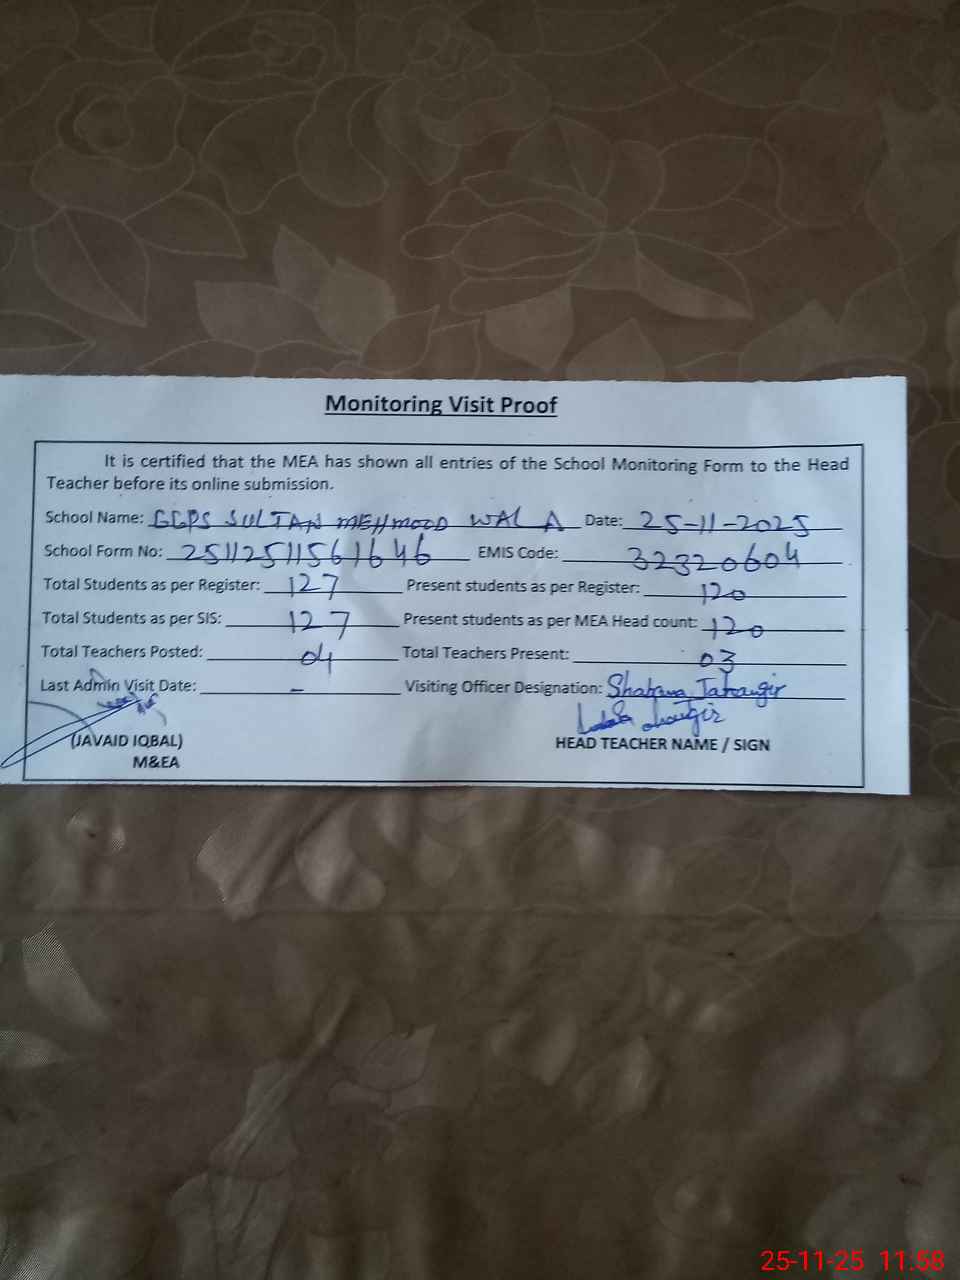 Monitoring Visit Proof
It is certified that the MEA has shown all entries of the School Monitoring Form to the Head
Teacher before its online submission.
School Name: GGPS SULTAN MEHMOOD WALA Date: 25-11-2025
School Form No: 25112511561646 EMIS Code: 32320604
Total Students as per Register: 127 Present students as per Register: 120
Total Students as per SIS: 127 Present students as per MEA Head count: 120
Total Teachers Posted: 04 Total Teachers Present: 03
Last Admin Visit Date: - Visiting Officer Designation: Shabana Jahangir
(JAVAID IQBAL) HEAD TEACHER NAME / SIGN
M&EA
25-11-25 11:58